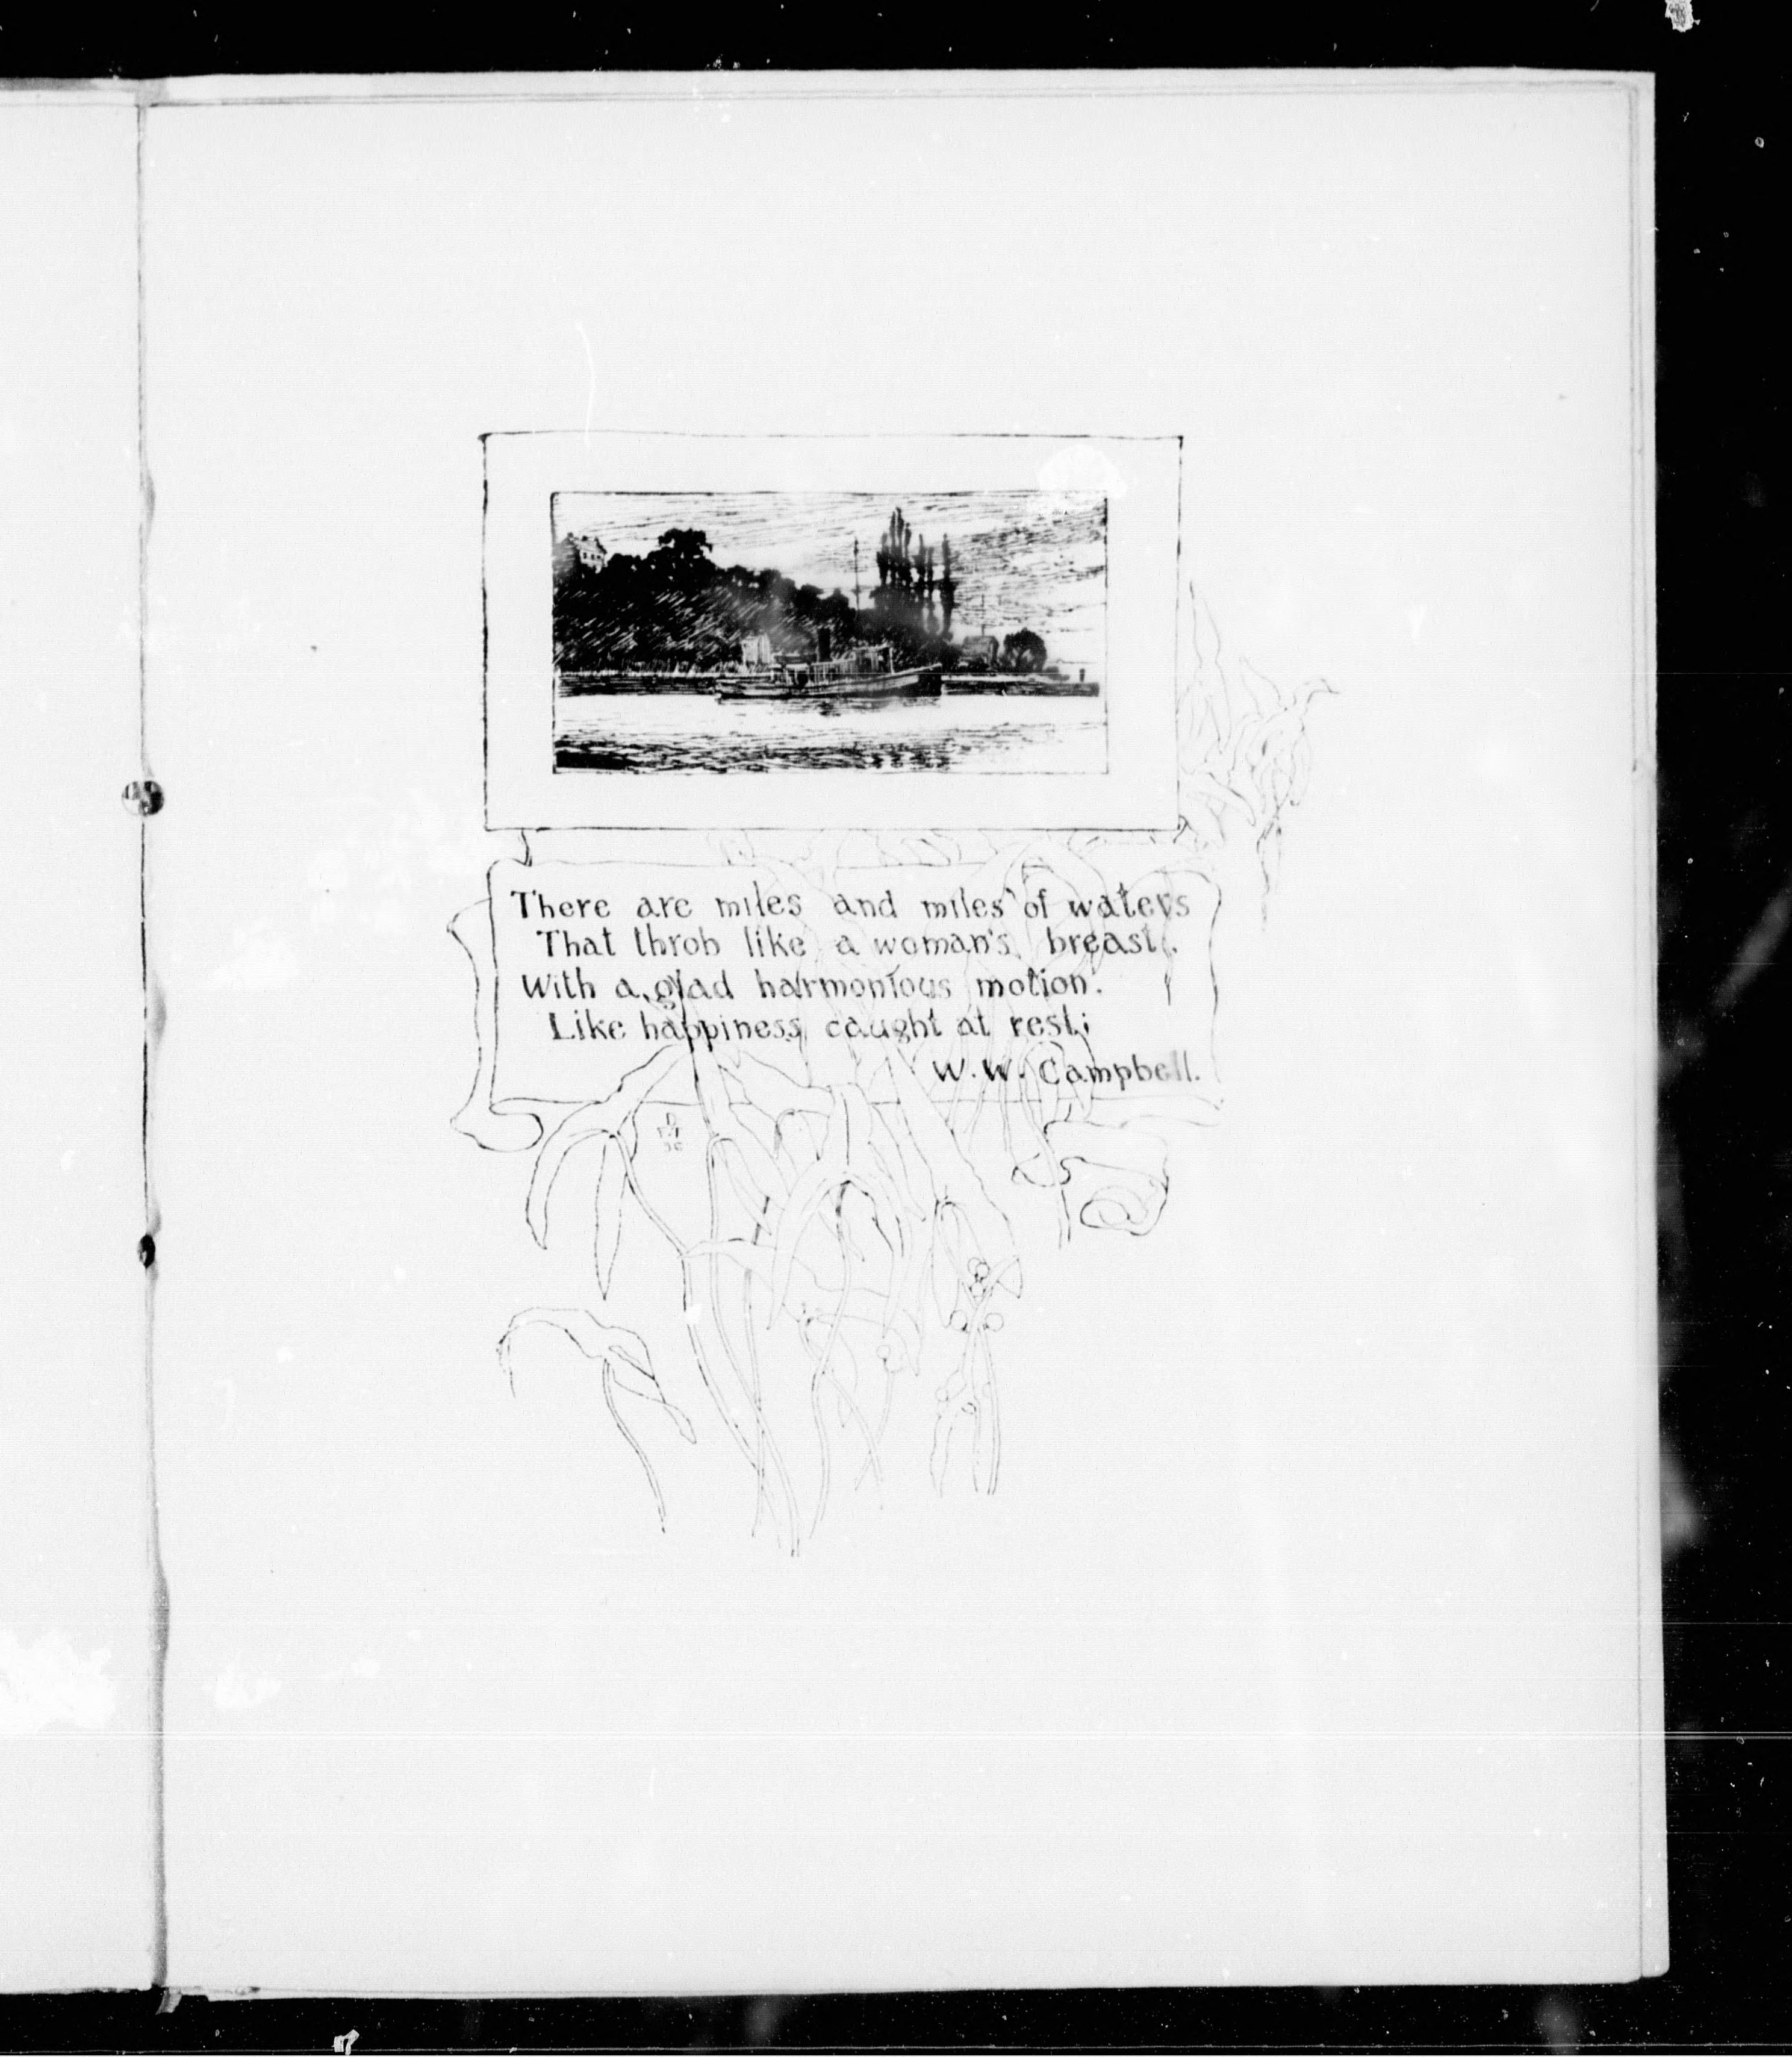 There are miles and miles of waters
That throb like a woman's breast,
With a glad harmonious motion.
Like happiness caught at rest;
W. W. Campbell.